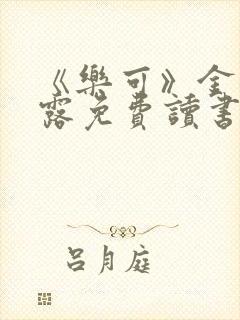 《樂可》全
露免費讀書
呂月庭